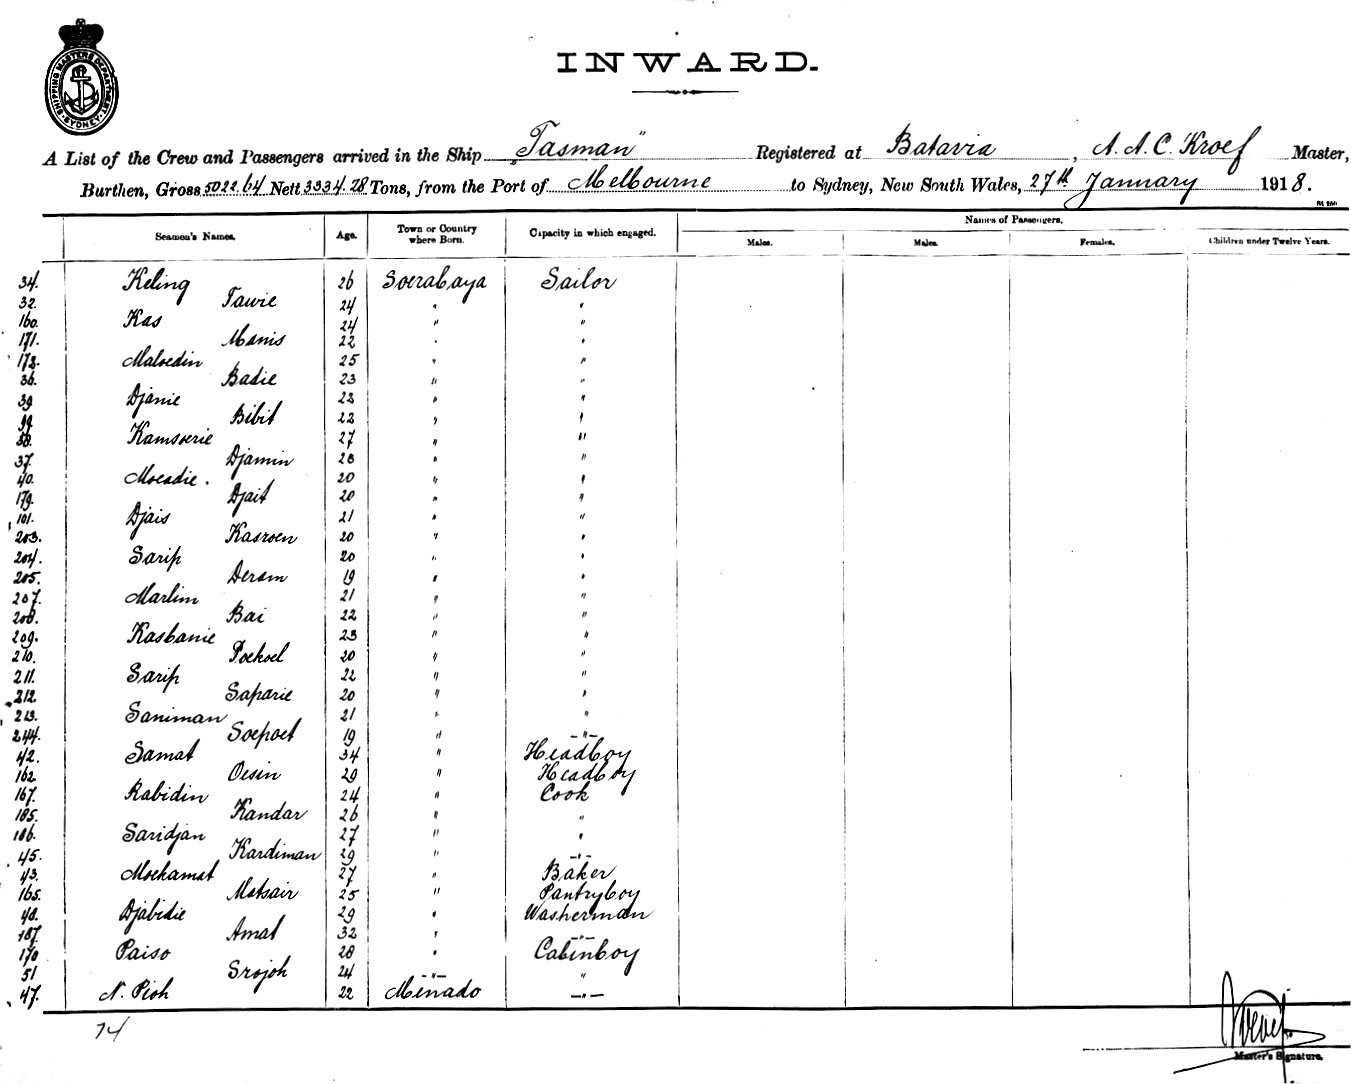 SHIPPING MASTERS DEPARTMENT
SYDNEY
INWARD.
A List of the Crew and Passengers arrived in the Ship "Tasman" Registered at Batavia, A. A. C. Kroef Master,
Burthen, Gross 5022.64 Nett 3334.28 Tons, from the Port of Melbourne to Sydney, New South Wales, 27th January 1918.
Names of Passengers.
Seamen's Names. Age. Town or Country where Born. Capacity in which engaged. Males. Males. Females. Children under Twelve Years.
34. Keling 26 Soerabaya Sailor
32. Tawie 24 " "
160. Kas 24 " "
171. Manis 22 " "
172. Maloedin 25 " "
36. Badie 23 " "
39 Djanie 22 " "
99 Bibit 22 " "
38. Kamsoerie 27 " "
37. Djamin 28 " "
40. Moeadie. 20 " "
179. Djait 20 " "
101. Djais 21 " "
203. Kasroen 20 " "
204. Sarip 20 " "
205. Deram 19 " "
207. Marlim 21 " "
208. Bai 22 " "
209. Kasbanie 23 " "
210. Poekoel 20 " "
211. Sarip 22 " "
212. Saparie 20 " "
213. Saniman 21 " "
244. Soepoet 19 " "
42. Samat 34 " Headboy
162. Oesin 29 " Headboy
167. Rabidin 24 " Cook
185. Kandar 26 " "
186. Saridjan 27 " "
45. Kardiman 29 " "
43. Moekamat 27 " Baker
165. Matsair 25 " Pantryboy
48. Djabidie 29 " Washerman
187. Amat 32 " "
170 Paiso 28 " Cabinboy
51 Srojoh 24 " "
47. N. Pioh 22 Menado "
74
Kroef
Master's Signature.